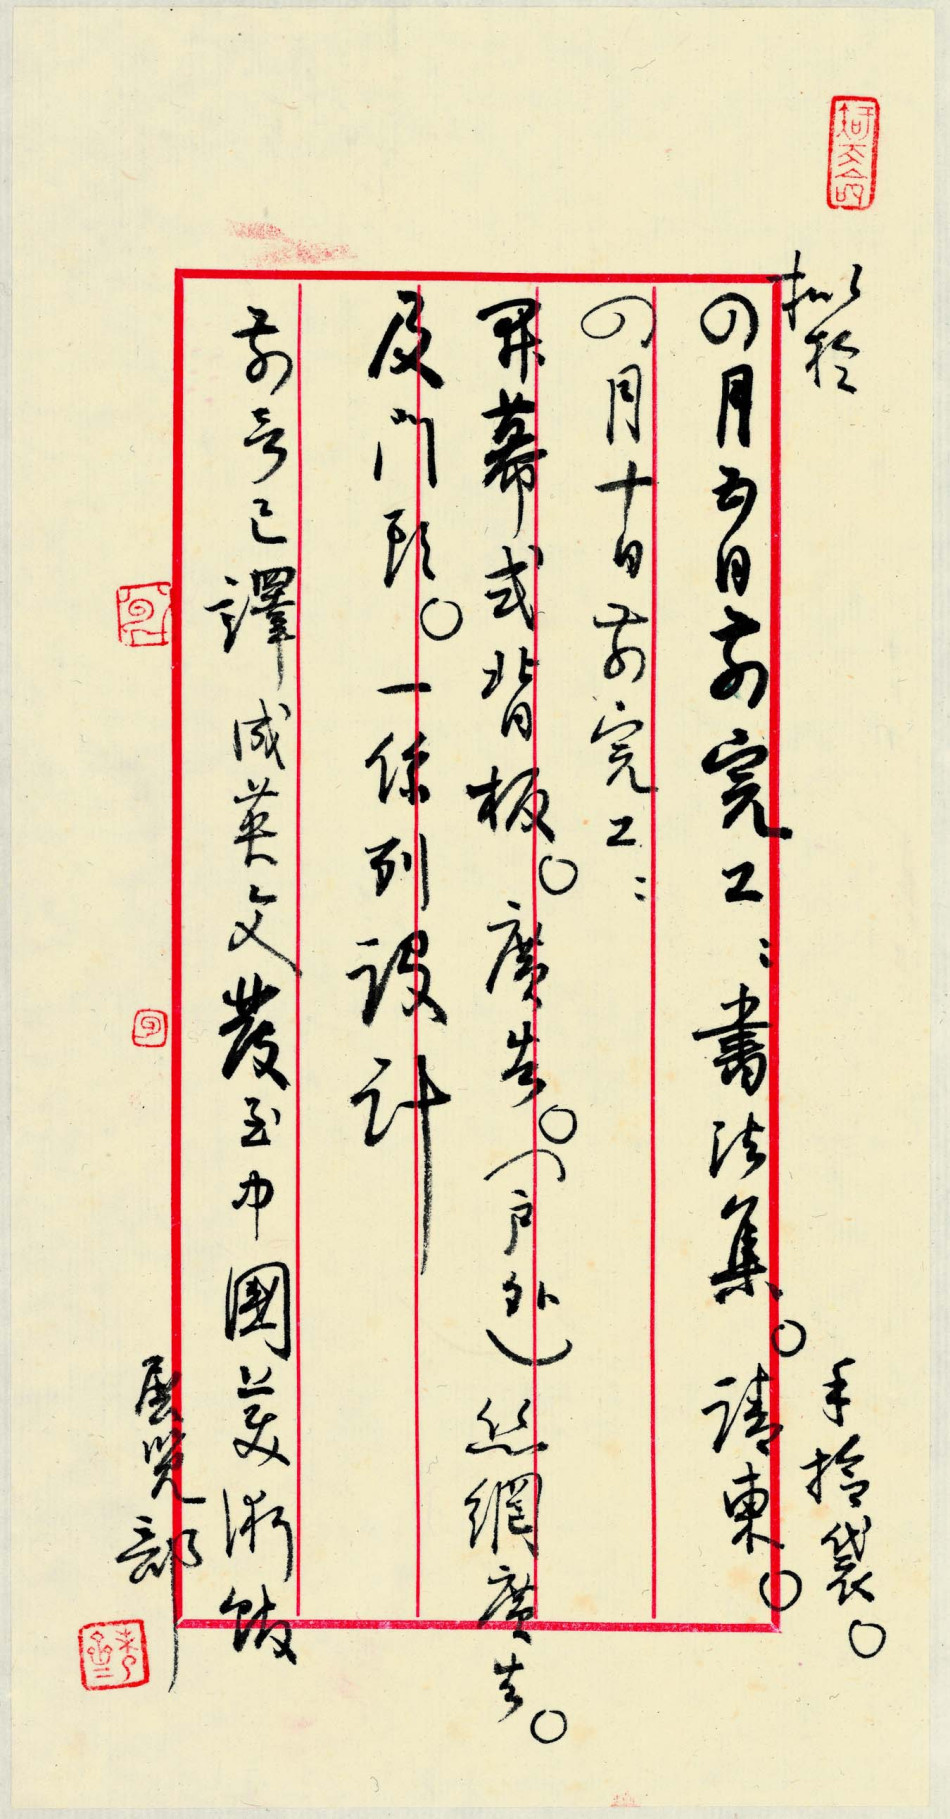 擬於
四月五日前完工：書法集。請柬。
手拎袋。
四月十日前完工：
開幕式背板。廣告。（戶外）丝網廣告。
及門頭。一係列設計
前言已譯成英文發至中國美術館
展览部